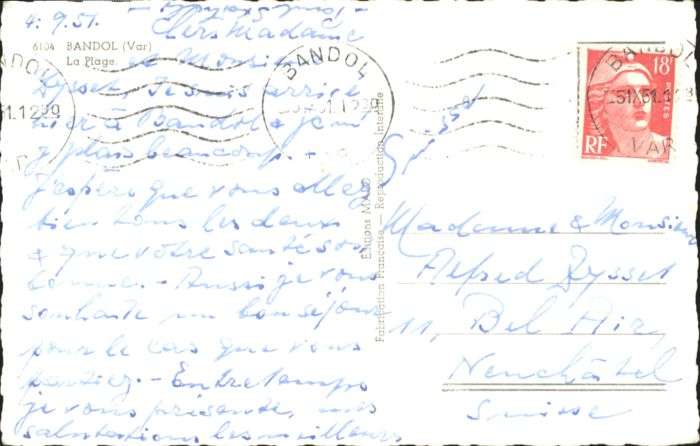 4.9.51.
6104 BANDOL (Var)
La Plage.
Chers Madame
et Monsieur
Dysset. Je suis arrivé
hier à Bandol & je m'
y plais beaucoup. -
J'espère que vous allez
bien tous les deux
& que votre santé soit
bonne. - Aussi je vous
souhaite un bon séjour
pour le cas que vous
partiez. - Entretemps
je vous présente, mes
salutations les meilleurs
BANDOL
VAR
BANDOL
BANDOL
VAR
18F
POSTES
RF
Editions MAR
Fabrication Française — Reproduction Interdite
Madame & Monsieur
Alfred Dysset
11, Bel Air,
Neuchâtel
Suisse